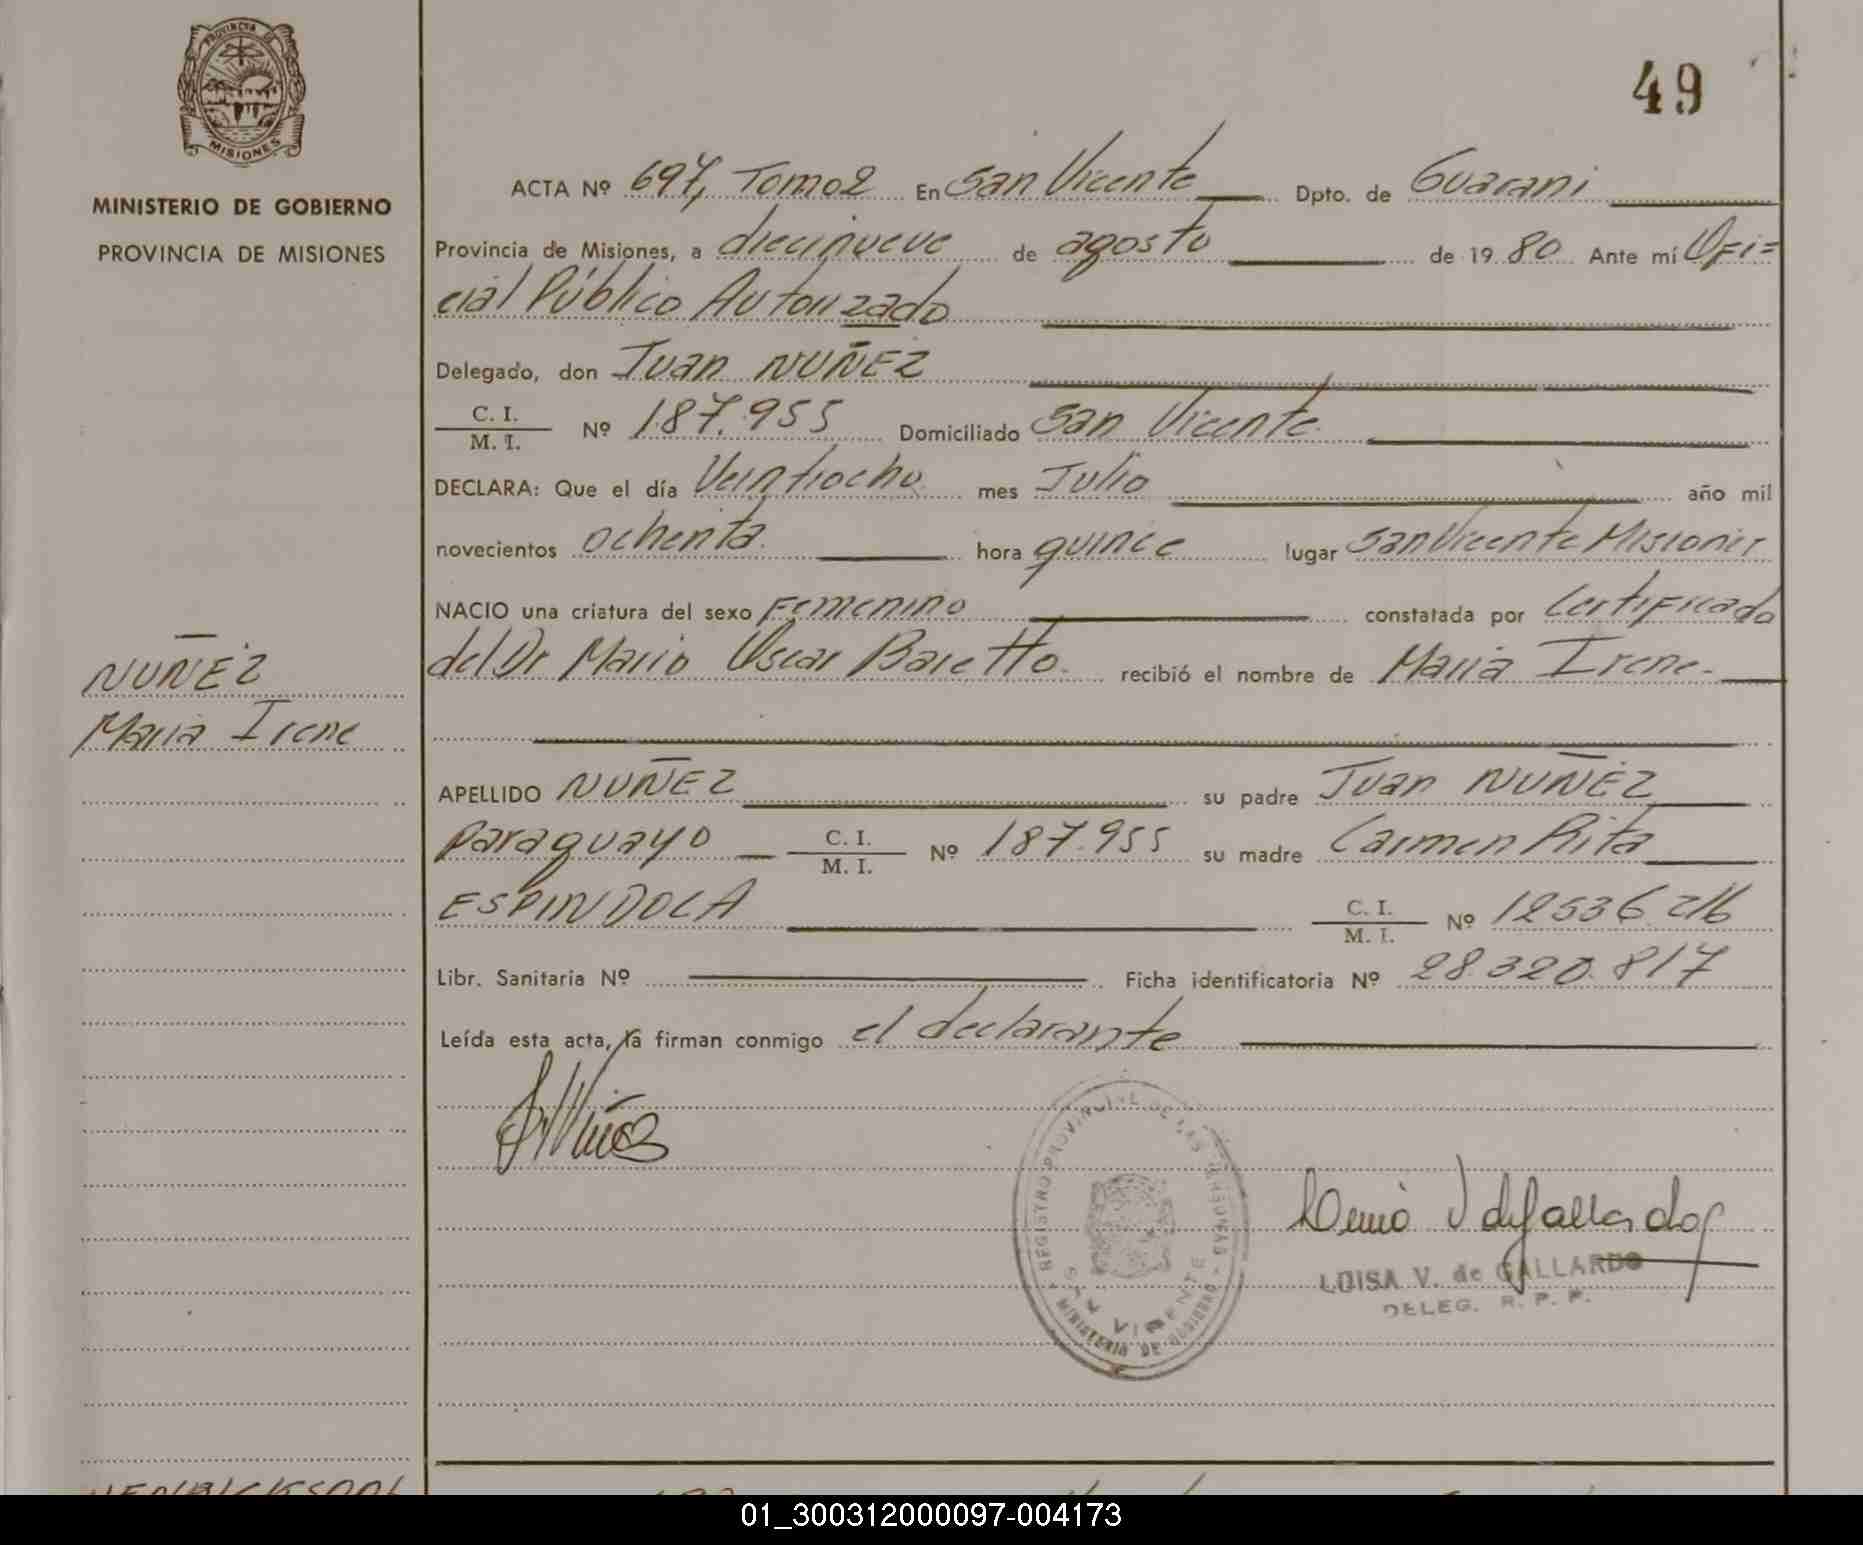 PROVINCIA DE
MISIONES
MINISTERIO DE GOBIERNO
PROVINCIA DE MISIONES
NUÑEZ
Maria Irene
49
ACTA Nº 697, Tomo 2 En San Vicente Dpto. de Guarani
Provincia de Misiones, a diecinueve de agosto de 19 80 Ante mí Ofi=
cial Público Autorizado
Delegado, don Juan NUÑEZ
C. I. / M. I. Nº 187.955 Domiciliado San Vicente
DECLARA: Que el día Veintiocho mes Julio año mil
novecientos ochenta hora quince lugar San Vicente Misiones
NACIO una criatura del sexo Femenino constatada por Certificado
del Dr Mario Oscar Baretto. recibió el nombre de Maria Irene.-
APELLIDO NUÑEZ su padre Juan NUÑEZ
Paraguayo C. I. / M. I. Nº 187.955 su madre Carmen Rita
ESPINDOLA C. I. / M. I. Nº 12536.216
Libr. Sanitaria Nº Ficha identificatoria Nº 28.320.817
Leída esta acta, la firman conmigo el declarante
REGISTRO PROVINCIAL DE LAS PERSONAS
SAN VICENTE
MINISTERIO DE GOBIERNO
LUISA V. de GALLARDO
DELEG. R. P. P.
01_300312000097-004173